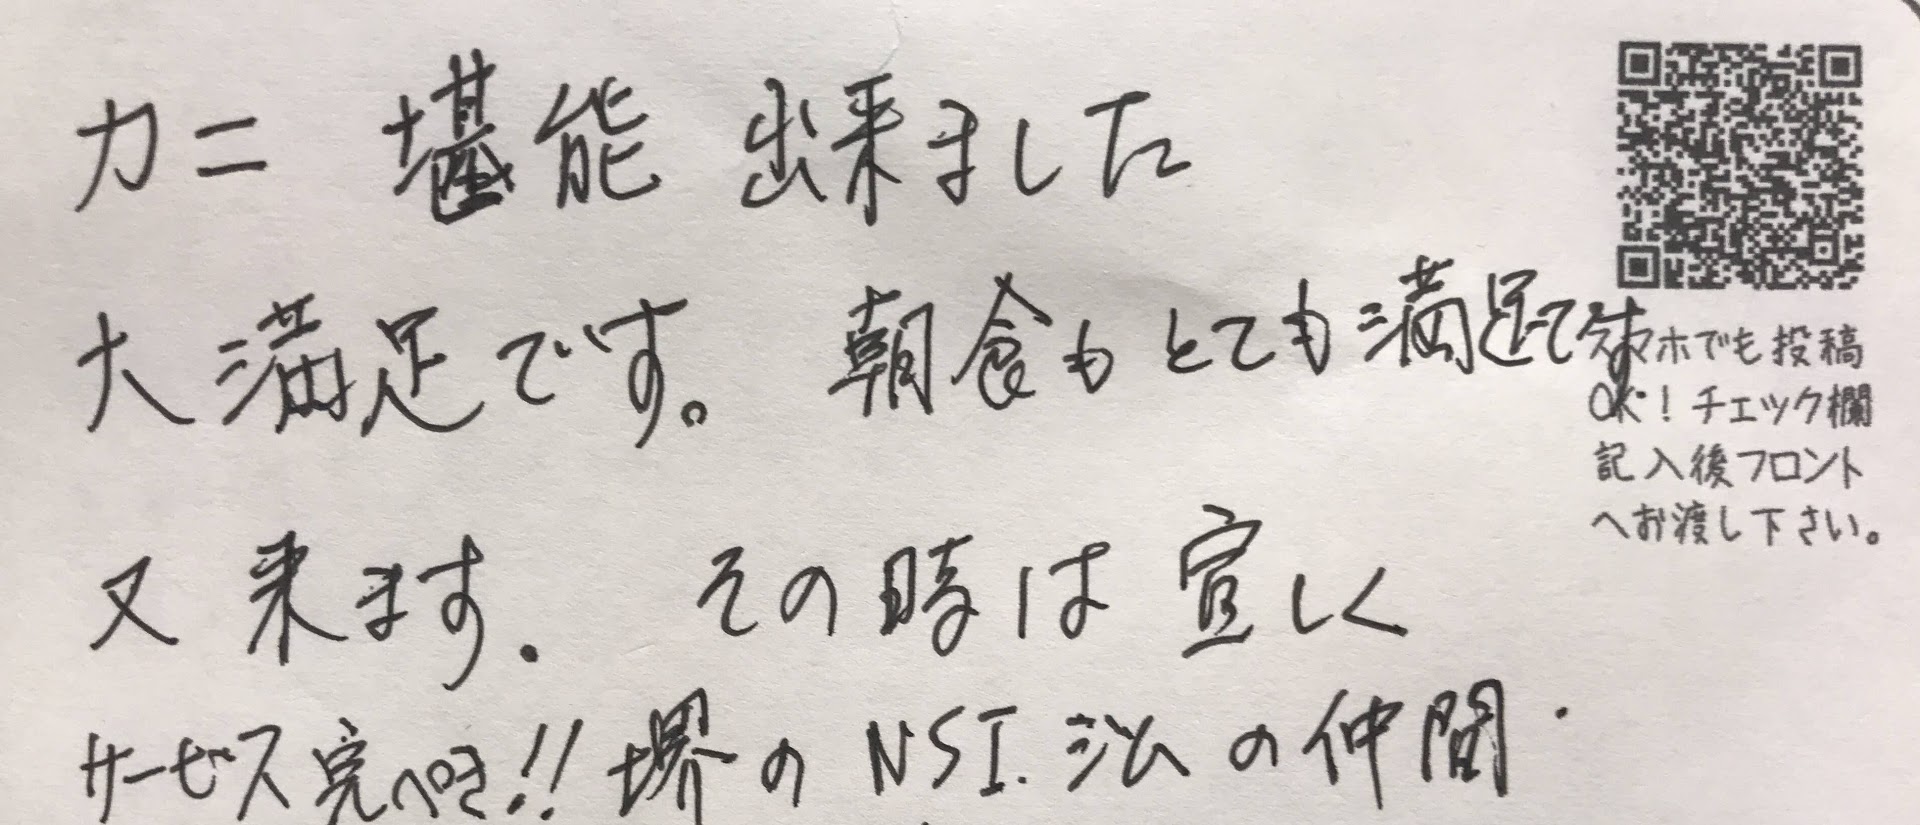 カニ 堪能 出来ました
大満足です。 朝食もとても満足です
スマホでも投稿
OK！チェック欄
記入後フロント
へお渡し下さい。
又来ます. その時は宜しく
サービス完ぺき!! 堺のNSI.ジムの仲間.